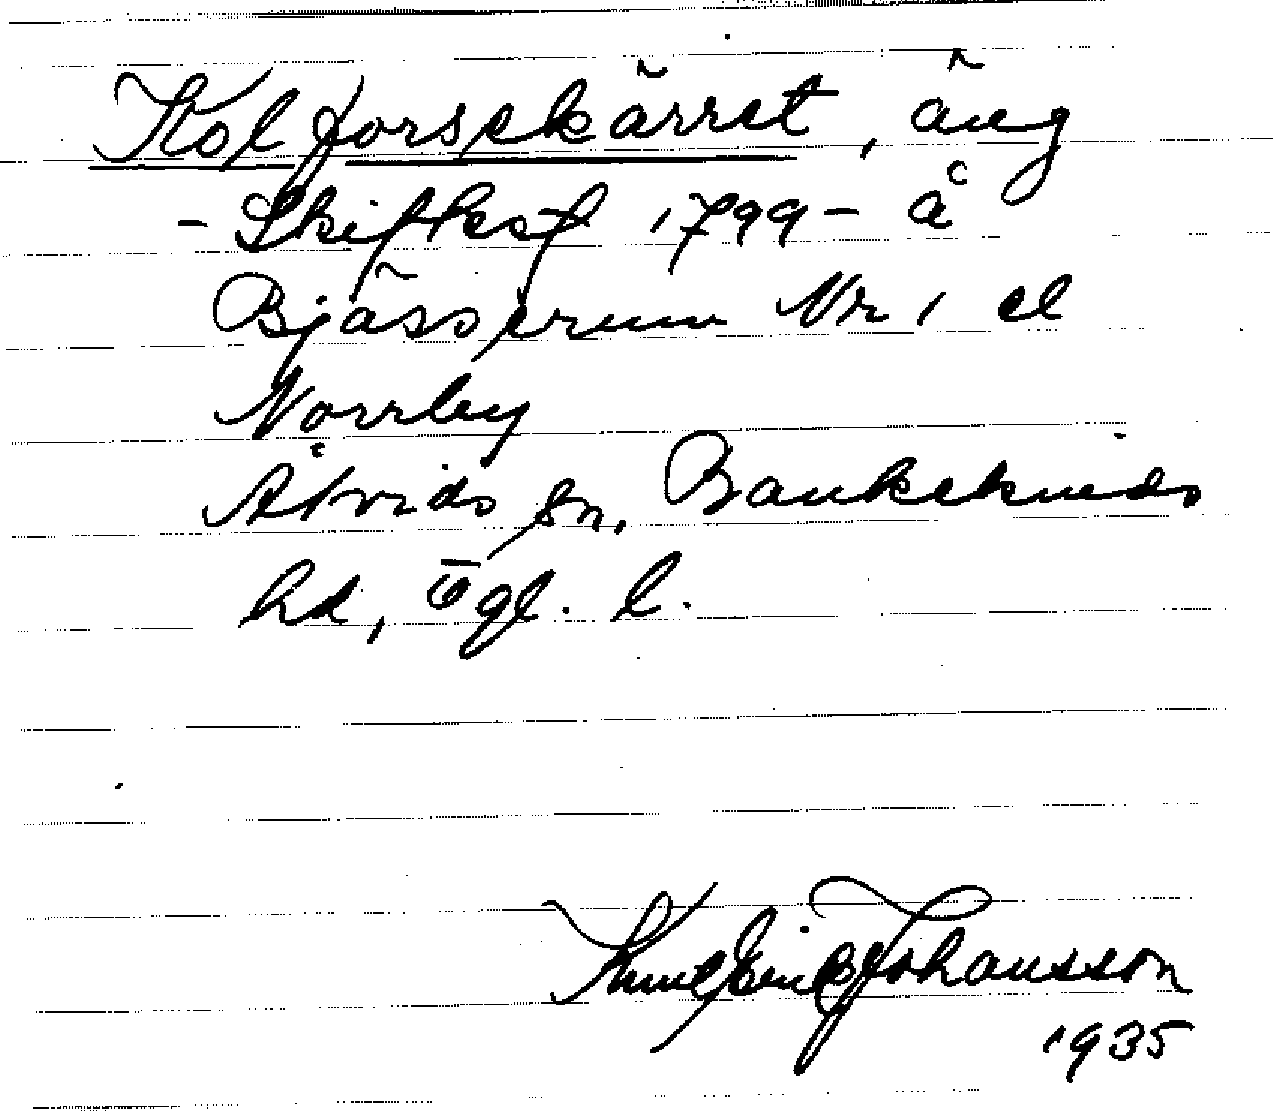 Kolforsekärret, äng
- Skiftesf 1799 - å
Bjässerum Nr 1 el
Norrby
Åtvids sn, Bankekinds
hd, Ögl. l.
Knut Erik Johansson
1935